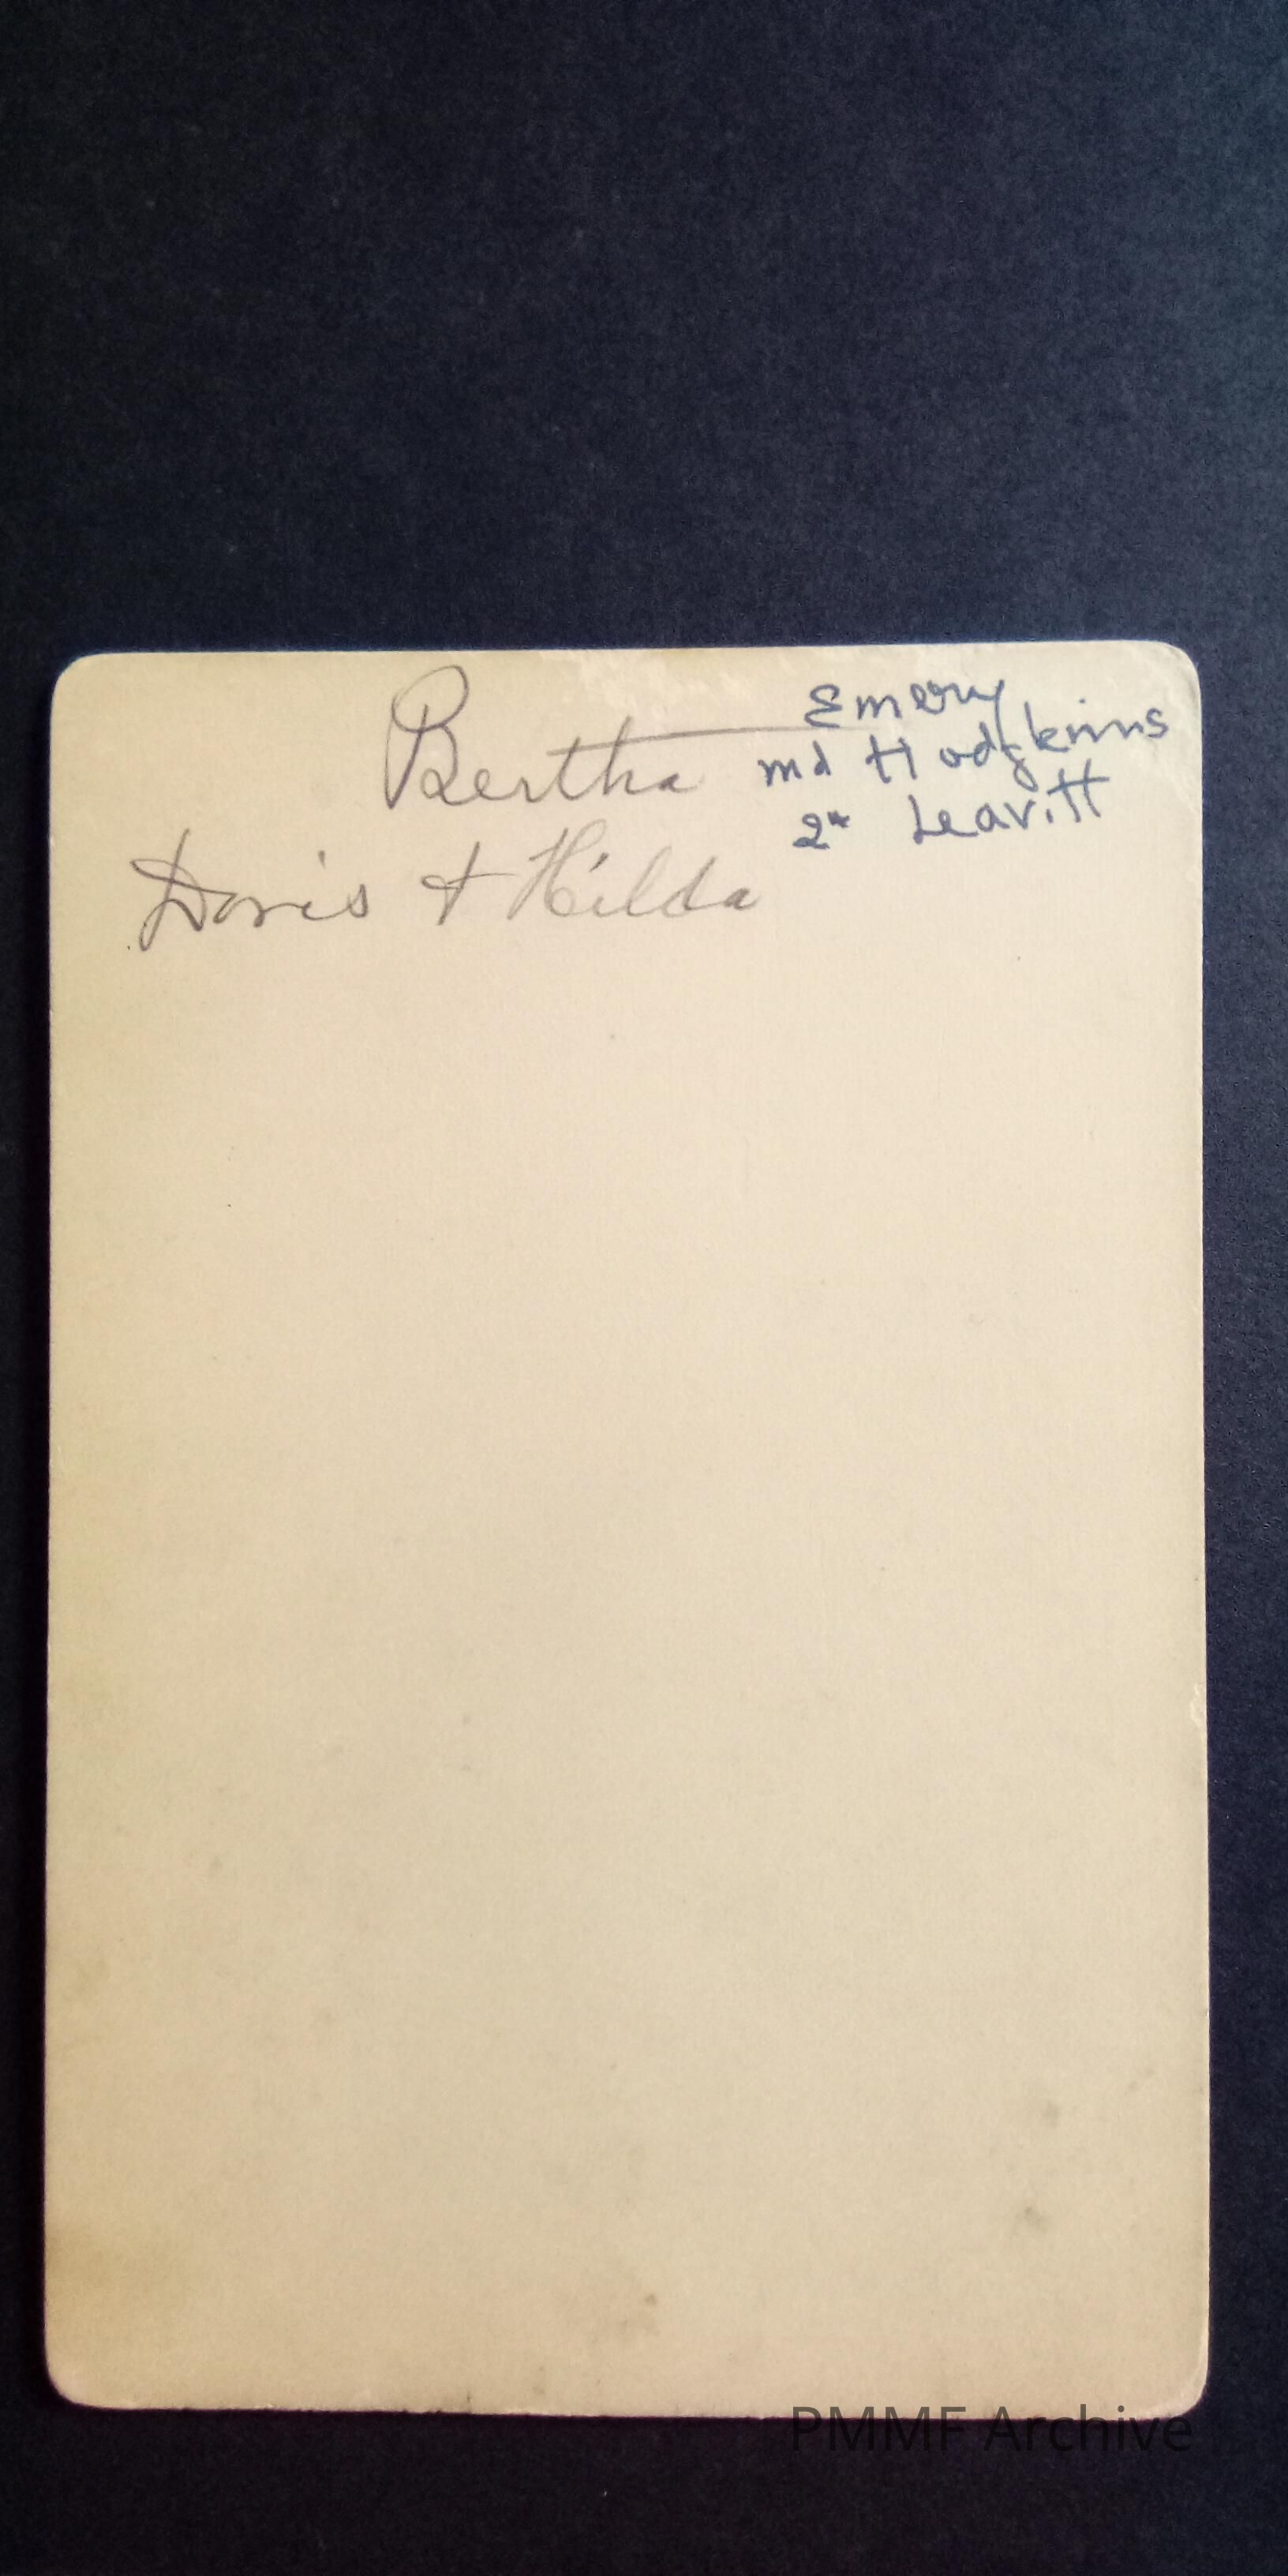 Bertha Emery
md Hodgkinns
2nd Leavitt
Doris & Hilda
PMMF Archive